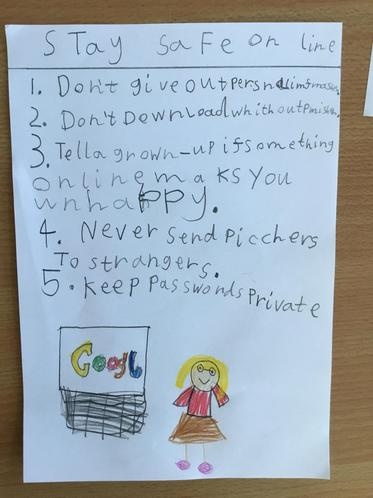 STay safe on line
1. Don't give out persnal infmasion.
2. Don't Download whithout pmishon.
3. Tell a grown-up if something
online maKS you
unhappy.
4. Never send picchers
To strangers.
5. Keep Passwords Private
Googl